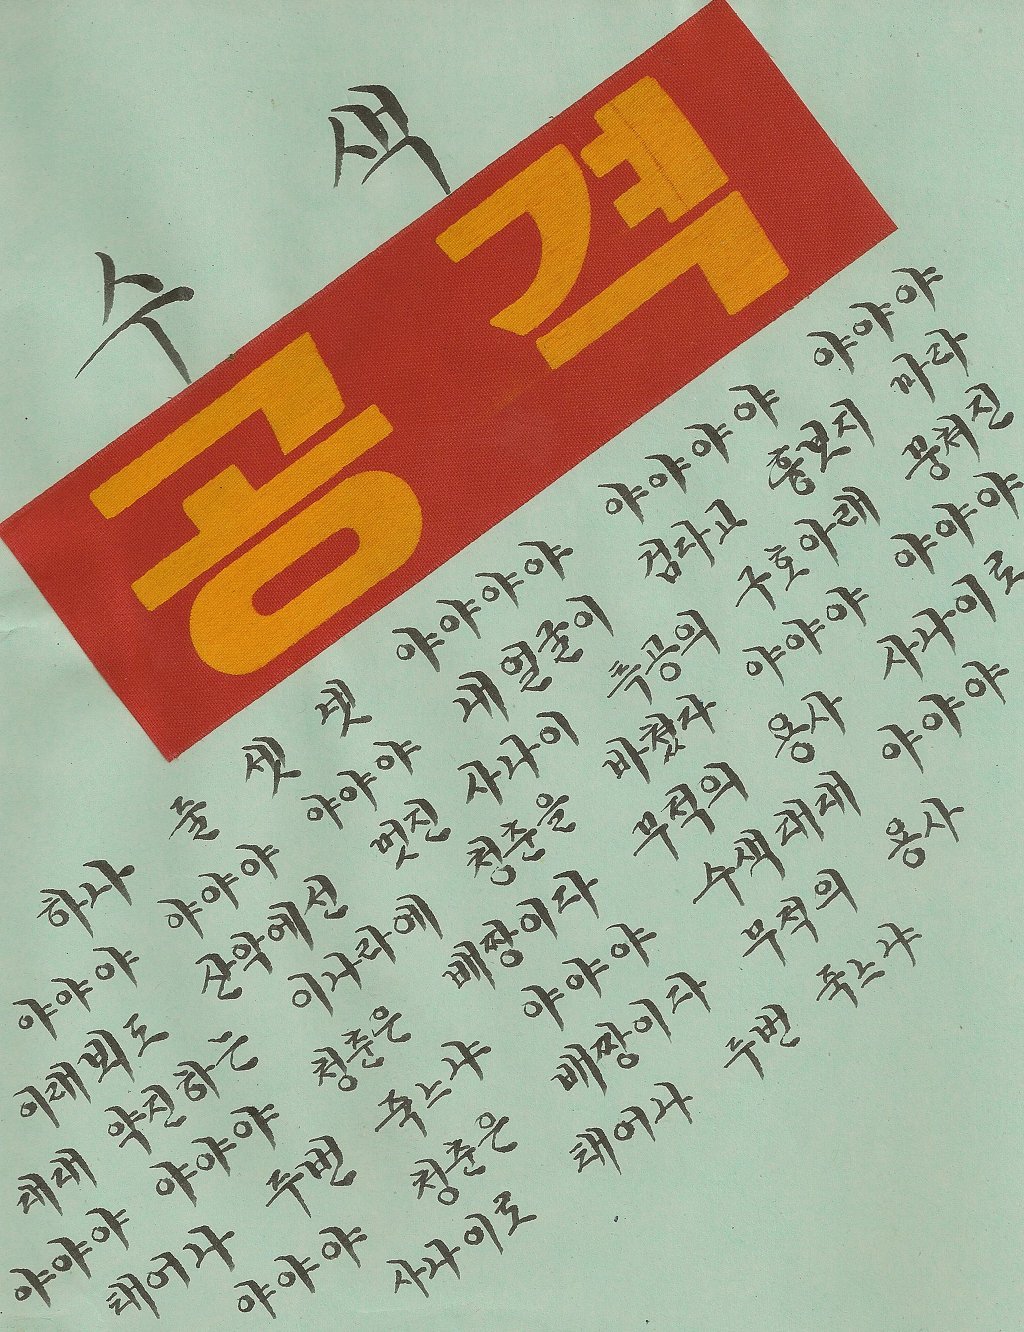 수색
공격
하나 둘 셋 넷 야야야야 야야야야 야야야
야야야 야야야 야야야 내 얼굴이 검다고 흉보지 마라
이래뵈도 산악에선 멋진 사나이 특공의 구호아래 뭉쳐진
대대 약진하는 이나라에 청춘을 바쳤다 야야야 야야야
야야야 야야야 청춘은 배짱이다 무적의 용사 사나이로
태어나 두번 죽느냐 야야야 수색대대 야야야
야야야 청춘은 배짱이다 무적의 용사
사나이로 태어나 두번 죽느냐